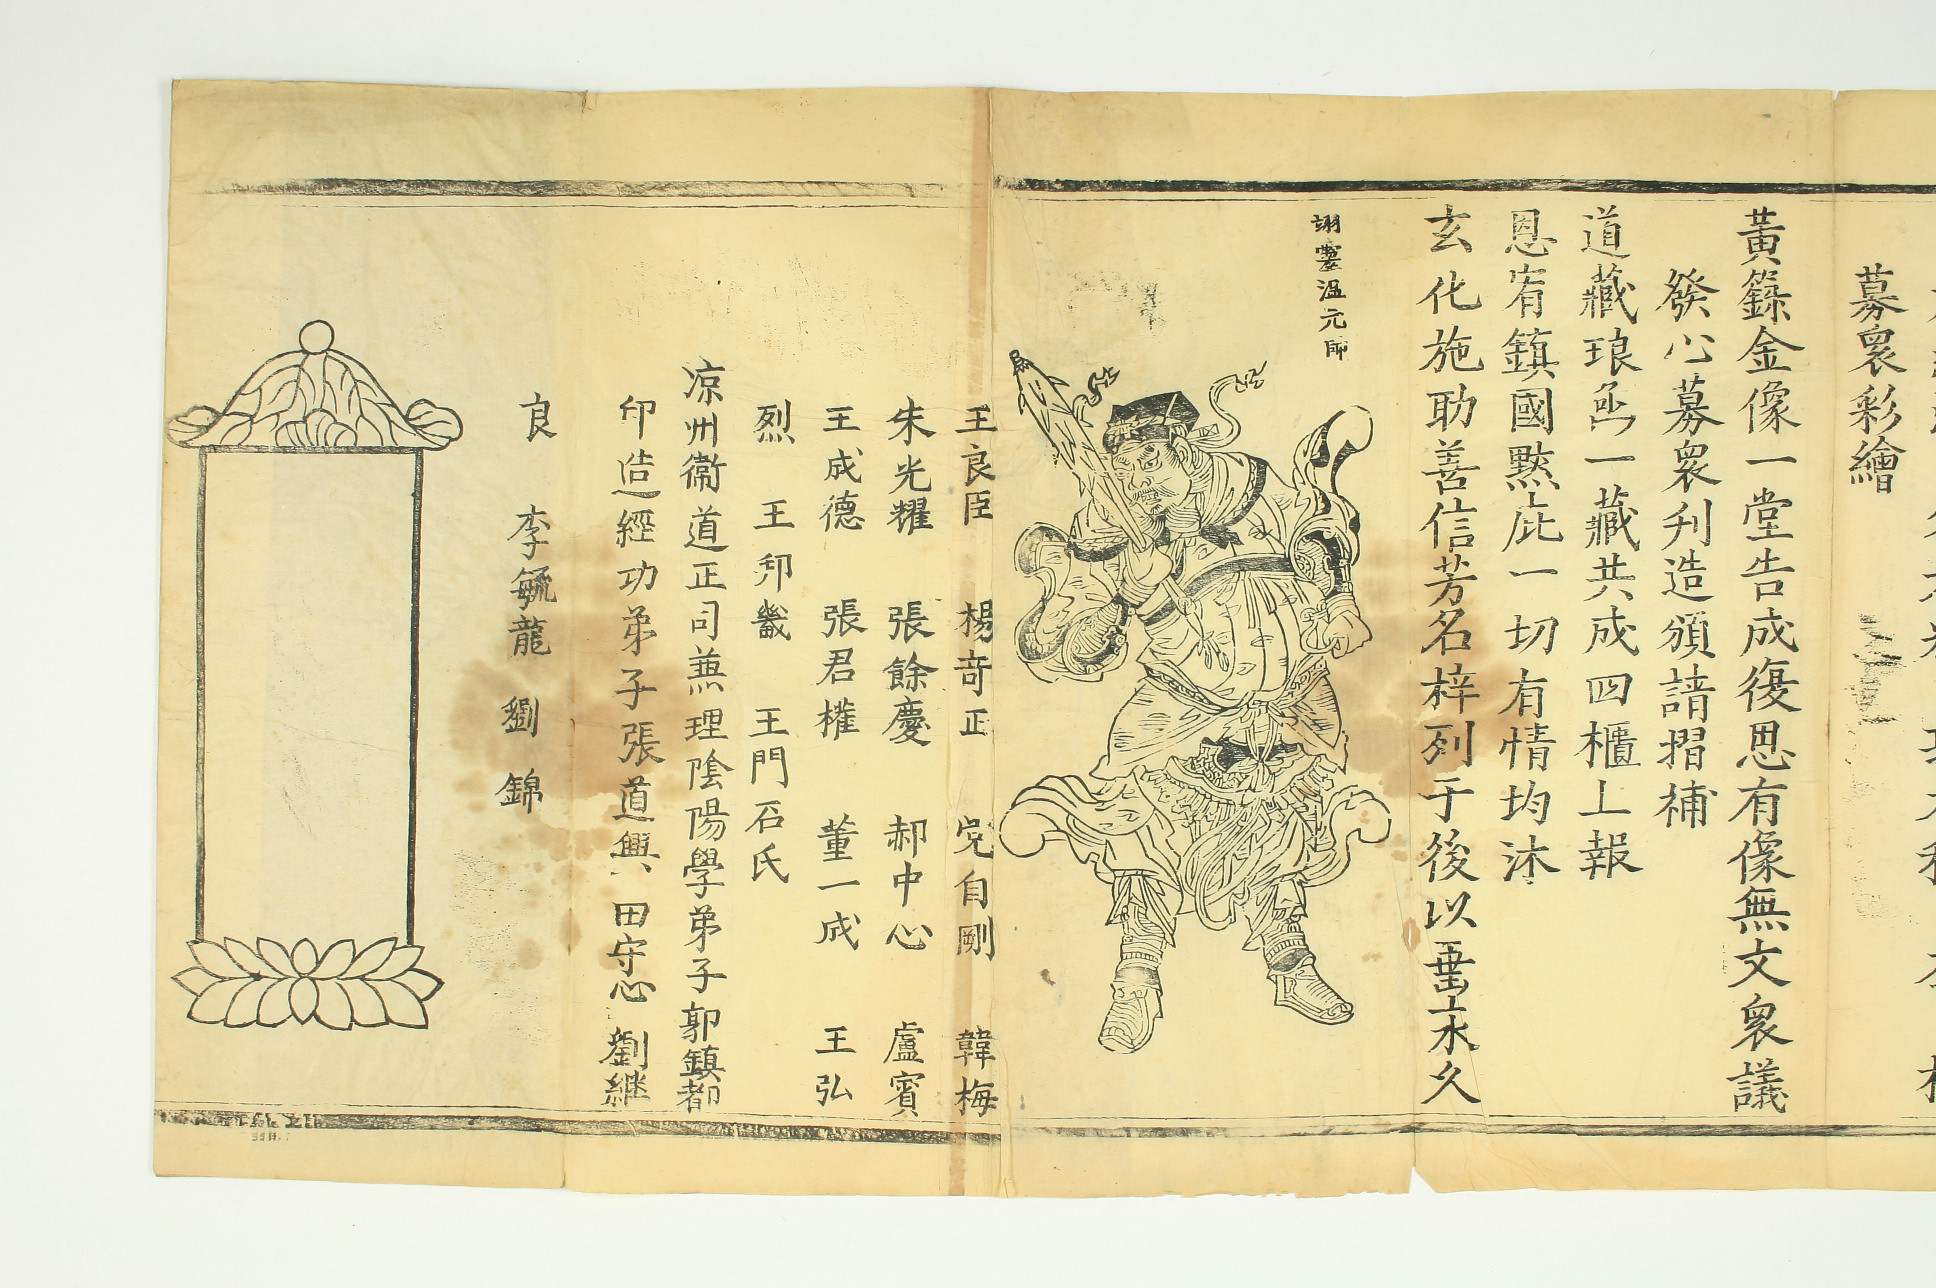 募眾彩繪
黃籙金像一堂告成復思有像無文眾議
發心募眾刋造頒請摺補
道藏琅凾一藏共成四櫃上報
恩宥鎮國黙庇一切有情均沐
玄化施助善信芳名梓列于後以垂永久
翊靈温元帥
王良臣 楊竒正 党自剛 韓梅
朱光耀 張餘慶 郝中心 盧賓
王成德 張君權 董一成 王弘
烈 王邦畿 王門石氏
凉州衞道正司兼理陰陽學弟子郭鎮都
印造經功弟子張道興 田守心 劉継
良 李毓龍 劉錦